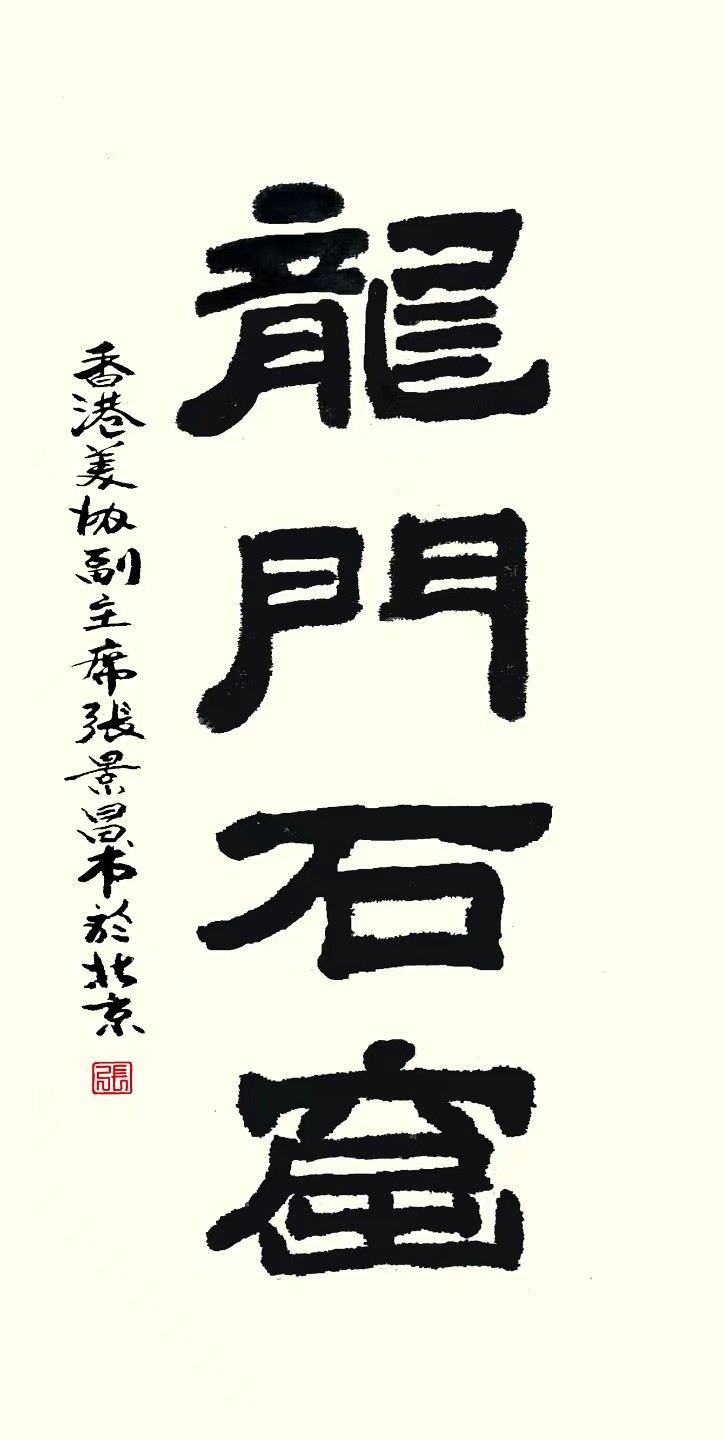 龍門石窟
香港美协副主席張景昌书於北京
張